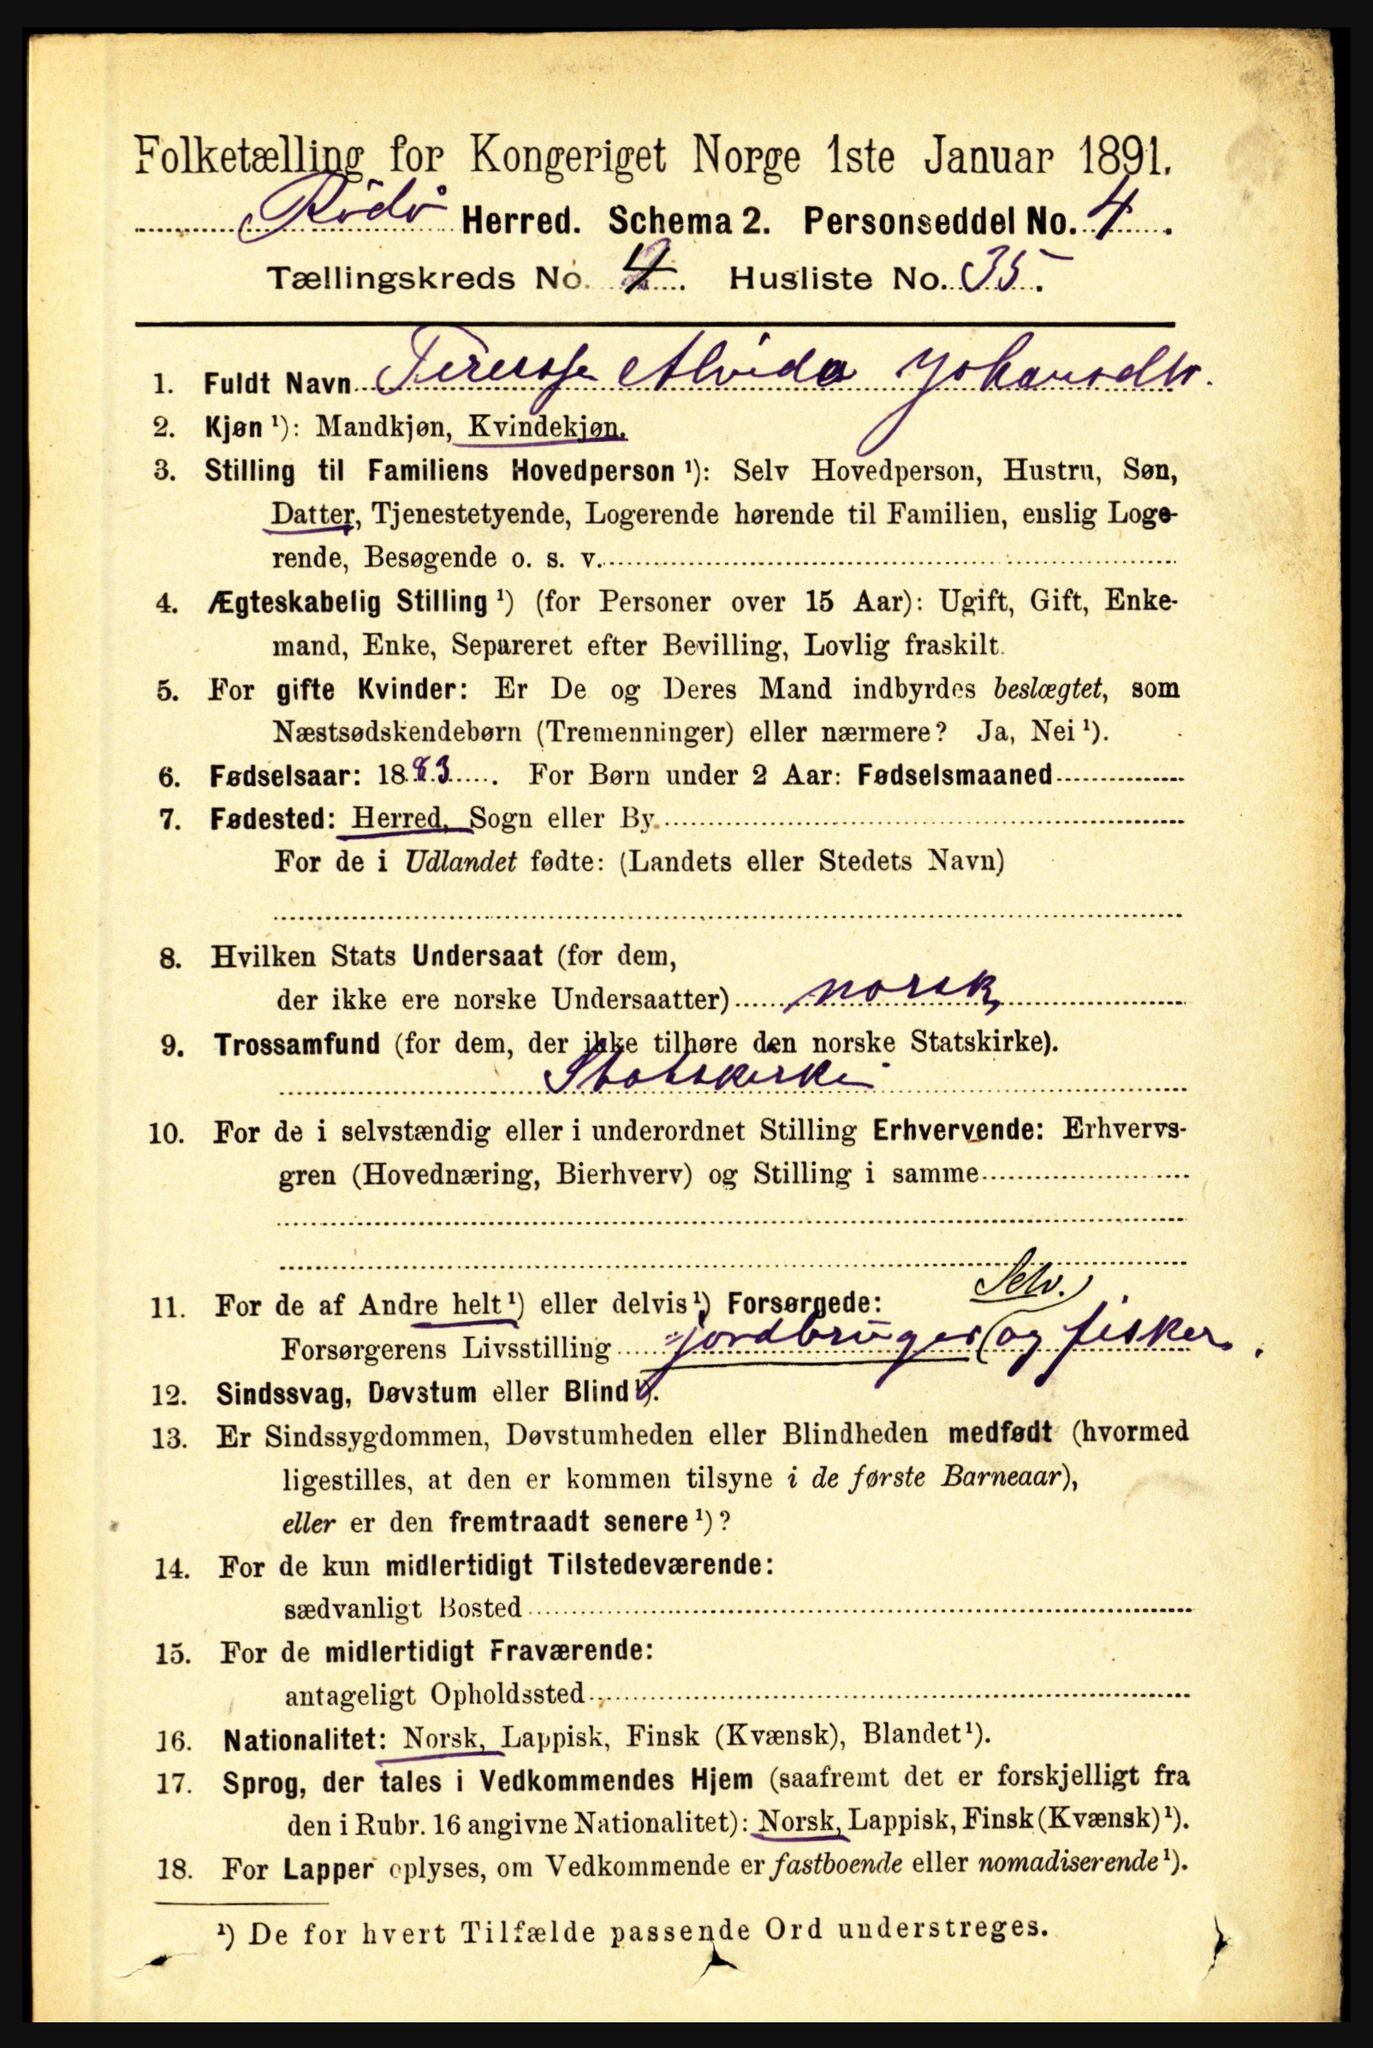 Folketælling for Kongeriget Norge 1ste Januar 1891.
Rödö Herred. Schema 2. Personseddel No. 4.
Tællingskreds No. 4. Husliste No. 35.
1. Fuldt Navn Teresse Alvida Johansdtr.
2. Kjøn ¹): Mandkjøn, Kvindekjøn.
3. Stilling til Familiens Hovedperson ¹): Selv Hovedperson, Hustru, Søn,
Datter, Tjenestetyende, Logerende hørende til Familien, enslig Loge-
rende, Besøgende o. s. v.
4. Ægteskabelig Stilling ¹) (for Personer over 15 Aar): Ugift, Gift, Enke-
mand, Enke, Separeret efter Bevilling, Lovlig fraskilt.
5. For gifte Kvinder: Er De og Deres Mand indbyrdes beslægtet, som
Næstsødskendebørn (Tremenninger) eller nærmere? Ja, Nei ¹).
6. Fødselsaar: 1883. For Børn under 2 Aar: Fødselsmaaned
7. Fødested: Herred, Sogn eller By
For de i Udlandet fødte: (Landets eller Stedets Navn)
8. Hvilken Stats Undersaat (for dem,
der ikke ere norske Undersaatter) norsk
9. Trossamfund (for dem, der ikke tilhøre den norske Statskirke).
Statskirke
10. For de i selvstændig eller i underordnet Stilling Erhvervende: Erhvervs-
gren (Hovednæring, Bierhverv) og Stilling i samme
Selv.
11. For de af Andre helt ¹) eller delvis ¹) Forsørgede:
Forsørgerens Livsstilling jordbruger (og fisker.
12. Sindssvag, Døvstum eller Blind ¹).
13. Er Sindssygdommen, Døvstumheden eller Blindheden medfødt (hvormed
ligestilles, at den er kommen tilsyne i de første Barneaar),
eller er den fremtraadt senere ¹)?
14. For de kun midlertidigt Tilstedeværende:
sædvanligt Bosted
15. For de midlertidigt Fraværende:
antageligt Opholdssted
16. Nationalitet: Norsk, Lappisk, Finsk (Kvænsk), Blandet ¹).
17. Sprog, der tales i Vedkommendes Hjem (saafremt det er forskjelligt fra
den i Rubr. 16 angivne Nationalitet): Norsk, Lappisk, Finsk (Kvænsk) ¹).
18. For Lapper oplyses, om Vedkommende er fastboende eller nomadiserende ¹).
¹) De for hvert Tilfælde passende Ord understreges.